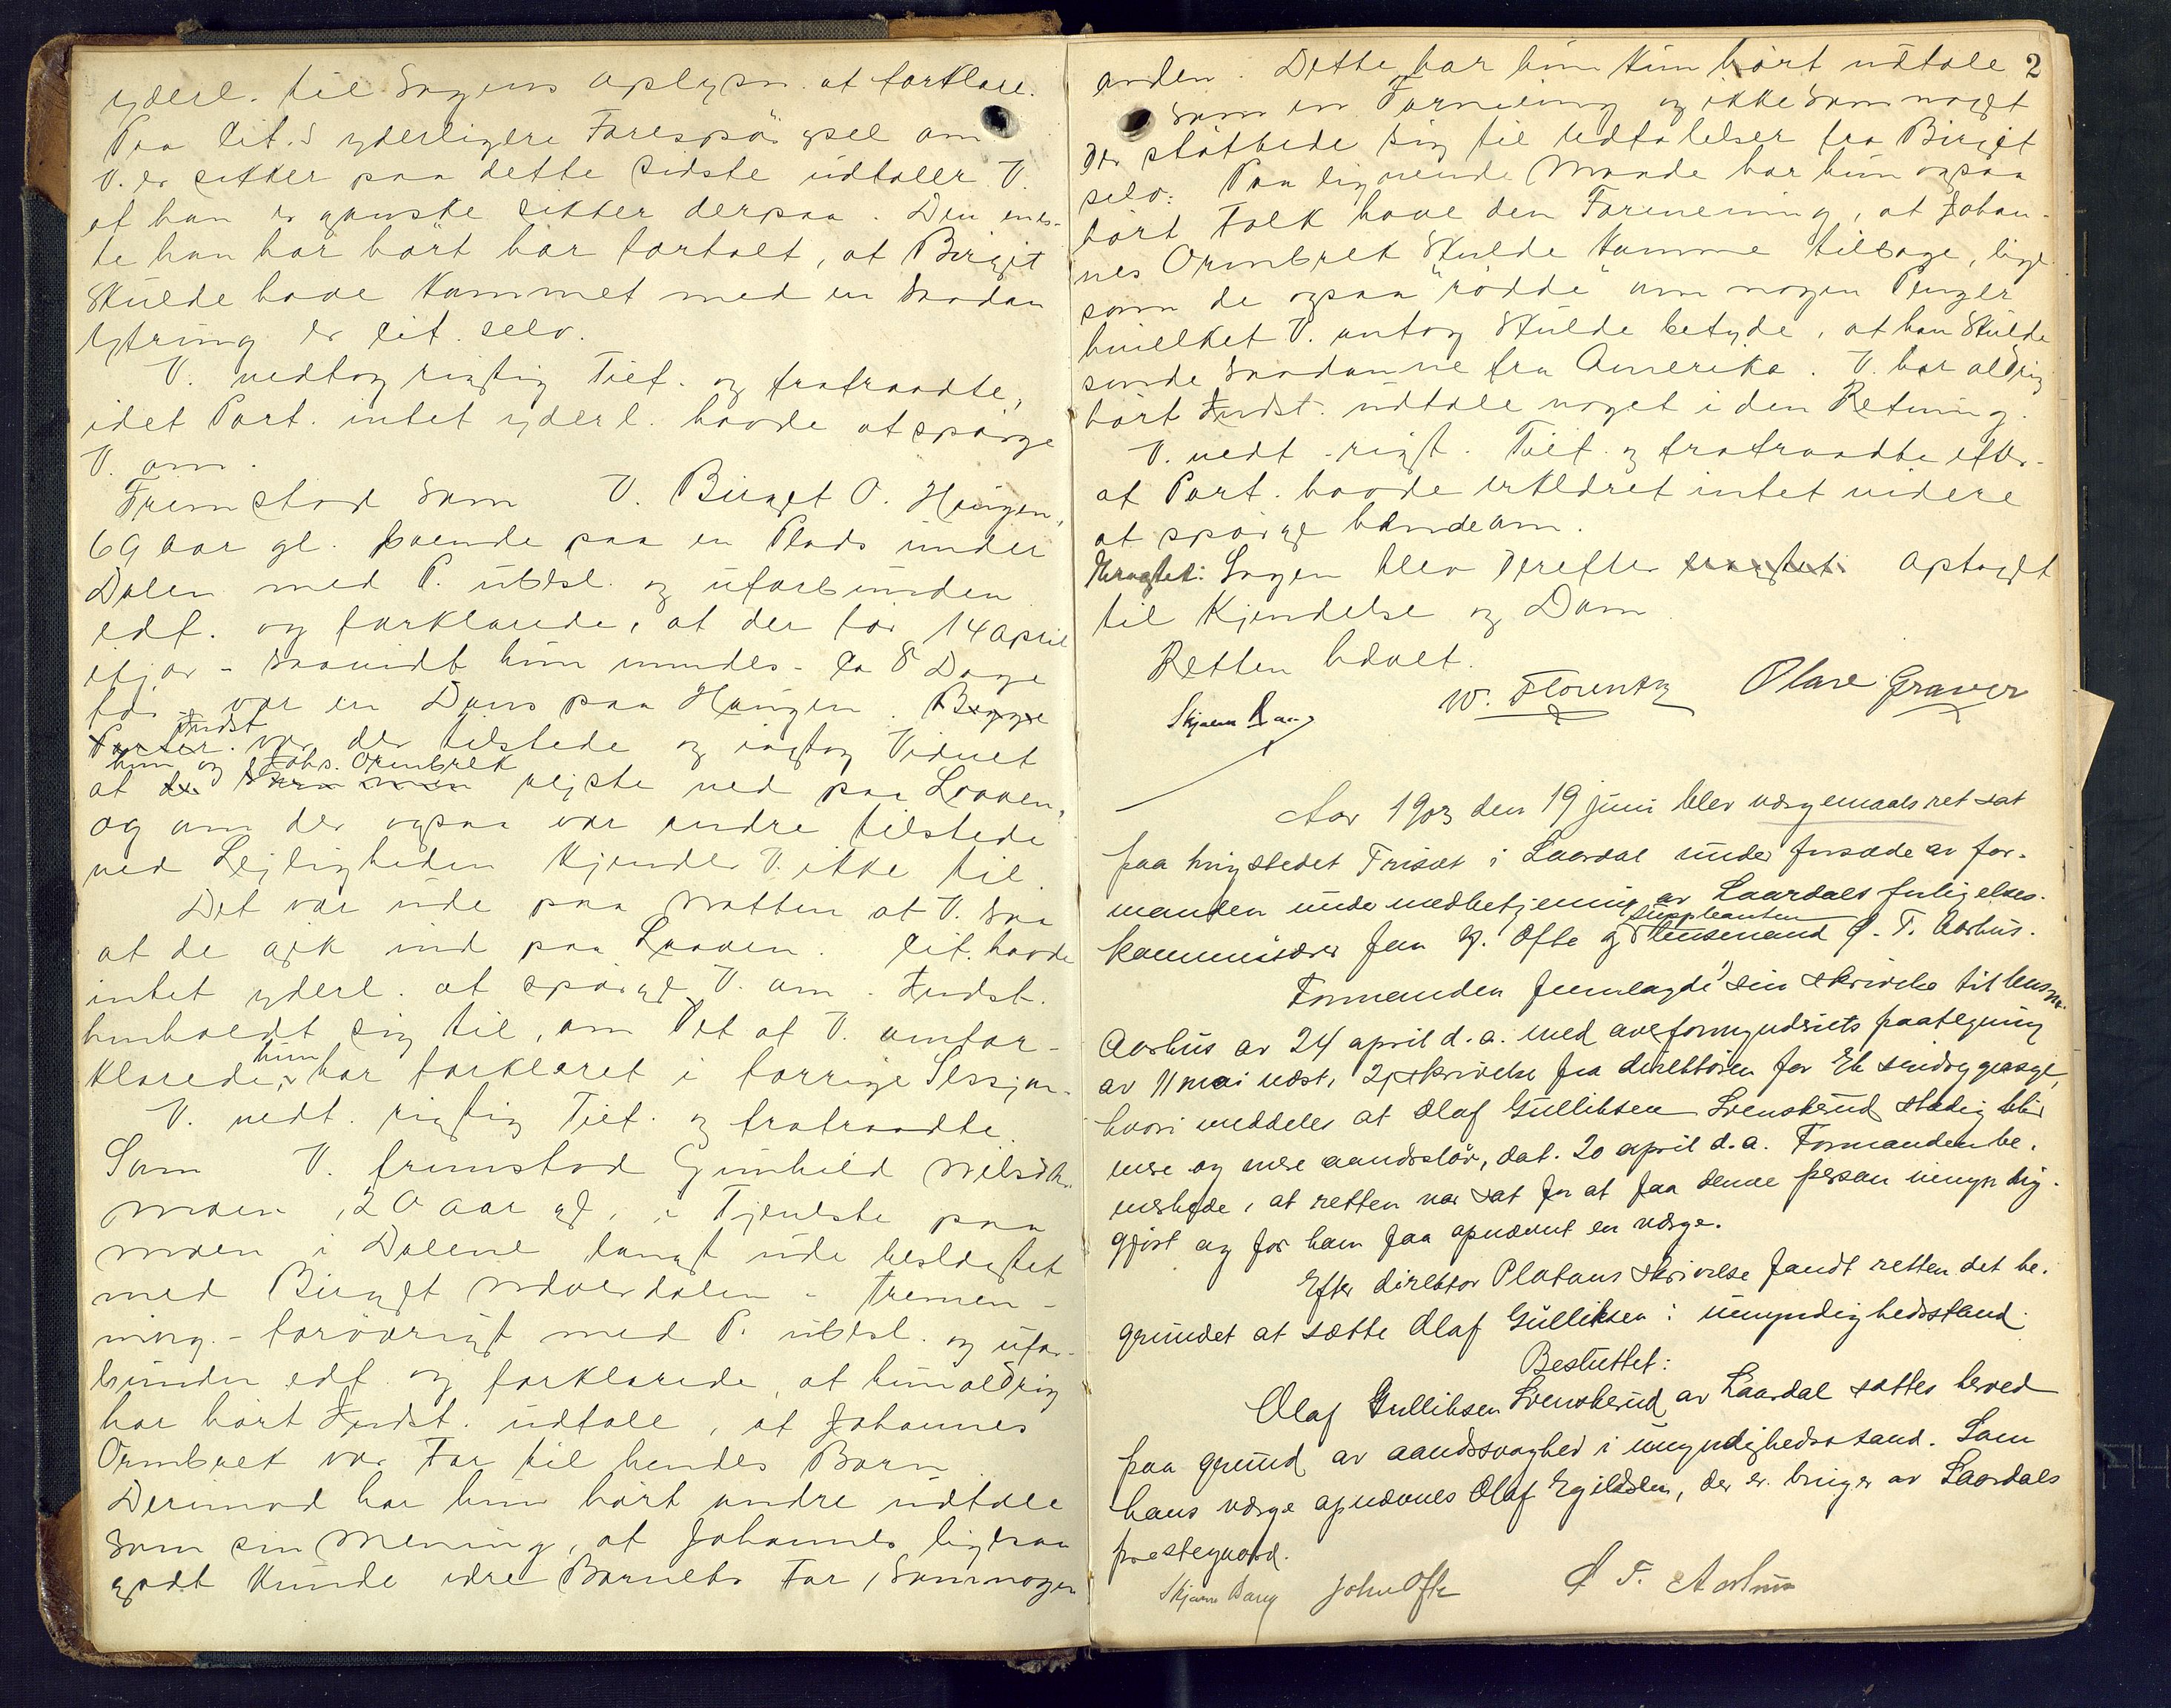 yderl. til Sagens Oplysn. at forklare.
Paa Cit.s yderligere Forespørgsel om
V. er sikker paa dette sidste udtaler V.
at han er ganske sikker derpaa. Den enes-
te han har hørt har fortalt, at Birgit
skulde have kommet med en saadan
Ytring er Cit. selv.
V. vedtog rigtig Tilf. og fratraadte,
idet Part. intet yderl. havde at spørge
V. om.
Fremstod som V. Birgit O. Haugen,
69 Aar gl. boende paa en Plads under
Dalen med P. ubesl. og uforbunden
edf. og forklarede, at der før 14 April
ifjor - saavidt hun mindes - ca 8 Dage
før - var en Dans paa Haugen. Begge
Parter Indst. var der tilstede og iagtog Vidnet
at de hun og Johs. Ormbrek reiste ned paa Laaven,
og om der ogsaa var andre tilstede
ved Leiligheden kjender V. ikke til.
Det var ude paa Natten at V. saa
at de gik ind paa Laaven. Cit. havde
intet yderl. at spørge V. om. Indst.
henholdt sig til, om Det af V. omfor-
klarede, hun har forklaret i forrige Session.
V. vedt. rigtig Tilf. og fratraadte.
Som V. fremstod Gunhild Nilsdtr.
Moen, 20 Aar gl., i Tjeneste paa
Moen i Dalene langt ude beslægtet
med Birgit - Tremen-
ning - forøvrigt med P. ubesl. og ufor-
bunden edf. og forklarede, at hun aldrig
har hørt Indst. udtale, at Johannes
Ormbrek var Far til hendes Barn.
Derimod har hun hørt andre udtale
som sin Mening, at Johannes ligesaa
godt kunde være Barnets Far, som nogen
2
anden. Dette har hun kun hørt udtale
som en Formening og ikke som noget
der støttede sig til Udtalelser fra Birgit
selv. Paa lignende Maade har hun ogsaa
hørt Folk have den Formening, at Johan-
nes Ormbrek skulde komme tilbage, lige
som de ogsaa "rødde" om nogen Penger
hvilket V. antog skulde betyde, at han skulde
sende saadanne fra Amerika. V. har aldrig
hørt Indst. udtale noget i den Retning.
V. vedt. rigt. Tilf. og fratraadte efter-
at Part. havde erklæret intet videre
at spørge hende om.
Eragtet: Sagen blev derefter eragtet: optaget
til Kjendelse og Dom.
Retten hævet.
Skjønn Dang W. Florentz Olav Graver
Aar 1903 den 19 juni blev vergemaalsret sat
paa tingstedet Triset i Laardal under forsæde av for-
manden under medbetjening av Laardals forligelses-
kommissærer John G. Ofte og suppleanten lensmand O. T. Aarhus.
Formanden fremlagde 1) sin skrivelse til lensm.
Aarhus av 24 april d.a. med overformynderiets paategning
av 11 mai næst, 2) skrivelse fra direktøren for Eg sindssygeasyl,
hvori meddeles at Olaf Gulliksen Svenskerud stadig blir
mere og mere aandssløv, dat. 20 april d.a. Formanden be-
merkede, at retten var sat for at faa denne person umyndig-
gjort og for ham faa opnævnt en verge.
Efter direktør Platous skrivelse fandt retten det be-
grundet at sætte Olaf Gulliksen i umyndighedsstand.
Besluttet:
Olaf Gulliksen Svenskerud av Laardal sættes herved
paa grund av aandssvaghed i umyndighedsstand. Som
hans verge opnævnes Olaf Egildsen, der er bruger av Laardals
prestegaard.
Skjønn Dang John Ofte O T. Aarhus